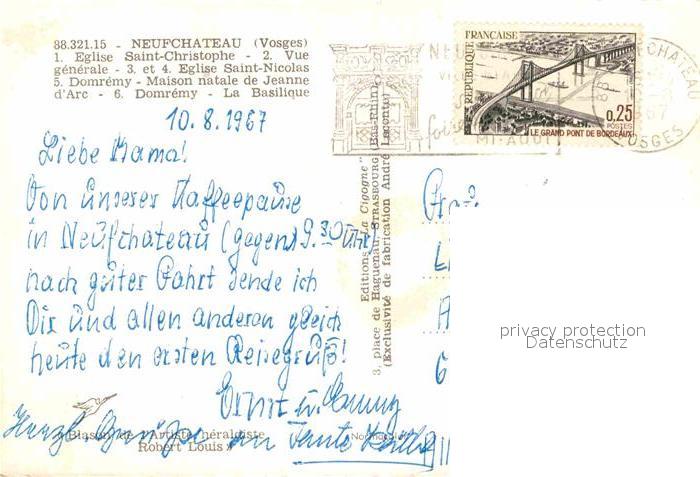 88.321.15 - NEUFCHATEAU (Vosges)
1. Eglise Saint-Christophe - 2. Vue
générale - 3. et 4. Eglise Saint-Nicolas
5. Domrémy - Maison natale de Jeanne
d'Arc - 6. Domrémy - La Basilique
10.8.1967
Liebe Mama!
Von unserer Kaffeepause
in Neufchateau (gegen 9.30 Uhr)
nach guter Fahrt sende ich
Dir und allen anderen gleich
heute den ersten Reisegruß!
Ernst u.
Herzl. Grüße an Tante
Blason de l'Artiste héraldiste
Robert Louis »
Editions "La Cigogne"
3, place de Haguenau, STRASBOURG (Bas-Rhin)
(Exclusivité de fabrication André Leconte)
REPUBLIQUE FRANÇAISE
0,25
POSTES
LE GRAND PONT DE BORDEAUX
MI-AOUT
VOSGES
L
A
6
privacy protection
Datenschutz